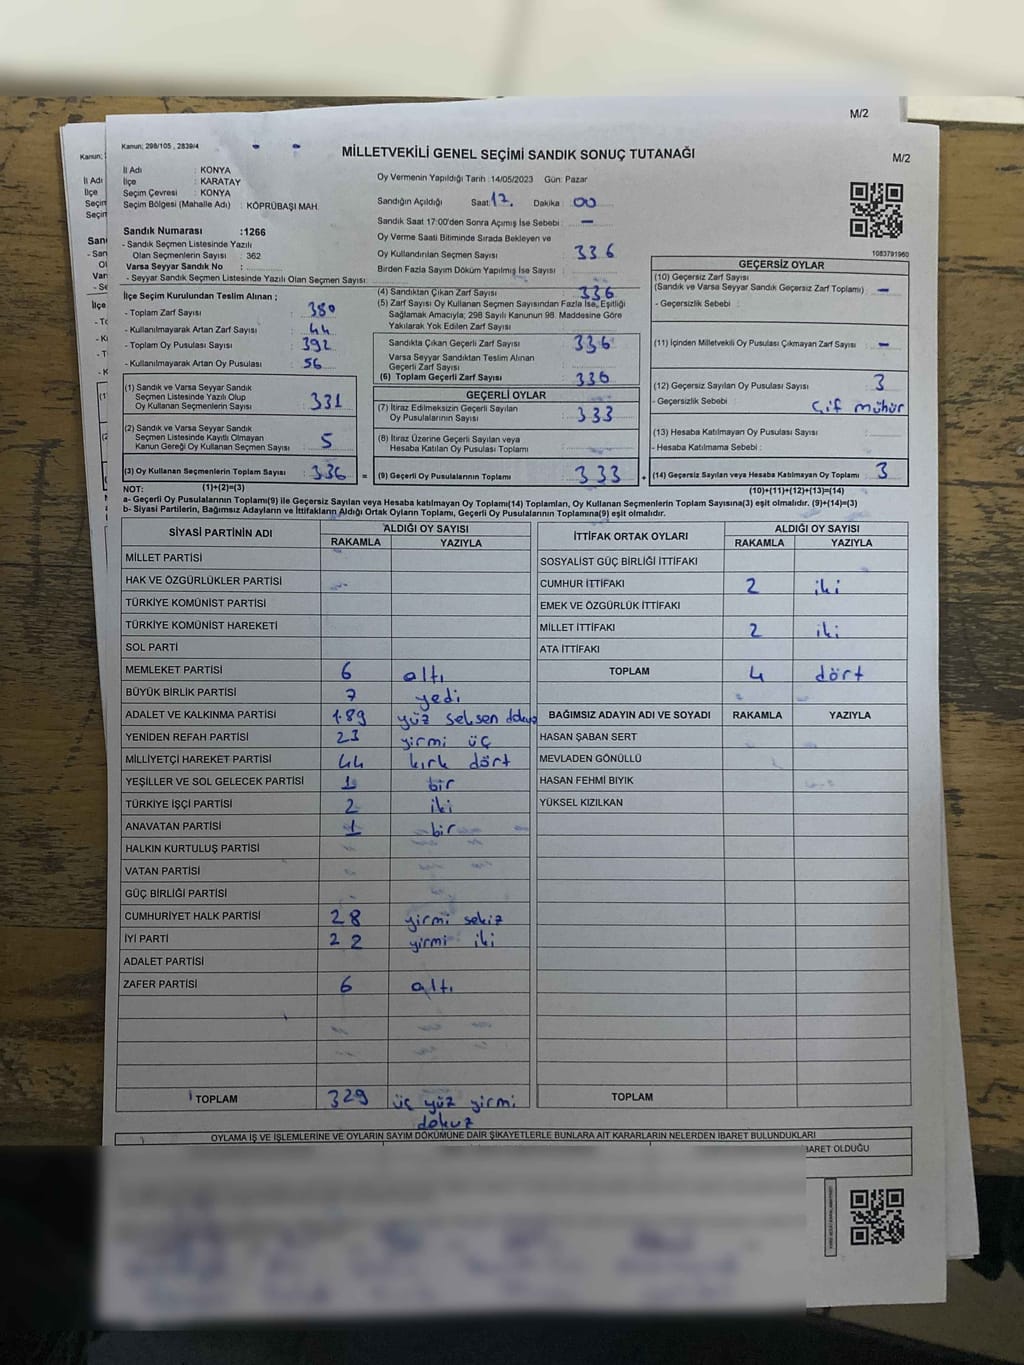 M/2
Kanun; 298/105 , 2839/4
MİLLETVEKİLİ GENEL SEÇİMİ SANDIK SONUÇ TUTANAĞI
M/2
Kanun;
İl Adı : KONYA
İlçe : KARATAY
Seçim Çevresi : KONYA
Seçim Bölgesi (Mahalle Adı) : KÖPRÜBAŞI MAH.
Oy Vermenin Yapıldığı Tarih :14/05/2023 Gün: Pazar
Sandığın Açıldığı Saat: 17. Dakika : 00
Sandık Saat 17:00'den Sonra Açımış İse Sebebi : —
Oy Verme Saati Bitiminde Sırada Bekleyen ve
Oy Kullandırılan Seçmen Sayısı : 336
Birden Fazla Sayım Döküm Yapılmış İse Sayısı :
1083791960
Sandık Numarası :1266
- Sandık Seçmen Listesinde Yazılı
Olan Seçmenlerin Sayısı : 362
Varsa Seyyar Sandık No :
- Seyyar Sandık Seçmen Listesinde Yazılı Olan Seçmen Sayısı:
İlçe Seçim Kurulundan Teslim Alınan ;
- Toplam Zarf Sayısı : 380
- Kullanılmayarak Artan Zarf Sayısı : 44
- Toplam Oy Pusulası Sayısı : 392
- Kullanılmayarak Artan Oy Pusulası : 56
(1) Sandık ve Varsa Seyyar Sandık
Seçmen Listesinde Yazılı Olup
Oy Kullanan Seçmenlerin Sayısı : 331
(2) Sandık ve Varsa Seyyar Sandık
Seçmen Listesinde Kayıtlı Olmayan
Kanun Gereği Oy Kullanan Seçmen Sayısı : 5
(3) Oy Kullanan Seçmenlerin Toplam Sayısı : 336
(4) Sandıktan Çıkan Zarf Sayısı : 336
(5) Zarf Sayısı Oy Kullanan Seçmen Sayısından Fazla İse, Eşitliği
Sağlamak Amacıyla; 298 Sayılı Kanunun 98. Maddesine Göre
Yakılarak Yok Edilen Zarf Sayısı :
Sandıkta Çıkan Geçerli Zarf Sayısı : 336
Varsa Seyyar Sandıktan Teslim Alınan
Geçerli Zarf Sayısı :
(6) Toplam Geçerli Zarf Sayısı : 336
GEÇERLİ OYLAR
(7) İtiraz Edilmeksizin Geçerli Sayılan
Oy Pusulalarının Sayısı : 333
(8) İtiraz Üzerine Geçerli Sayılan veya
Hesaba Katılan Oy Pusulası Toplamı :
= (9) Geçerli Oy Pusulalarının Toplamı : 333 +
GEÇERSİZ OYLAR
(10) Geçersiz Zarf Sayısı
(Sandık ve Varsa Seyyar Sandık Geçersiz Zarf Toplamı) : —
- Geçersizlik Sebebi :
(11) İçinden Milletvekili Oy Pusulası Çıkmayan Zarf Sayısı : —
(12) Geçersiz Sayılan Oy Pusulası Sayısı : 3
- Geçersizlik Sebebi : Çif mühür
(13) Hesaba Katılmayan Oy Pusulası Sayısı :
- Hesaba Katılmama Sebebi :
(14) Geçersiz Sayılan veya Hesaba Katılmayan Oy Toplamı : 3
NOT: (1)+(2)=(3)
(10)+(11)+(12)+(13)=(14)
a- Geçerli Oy Pusulalarının Toplamı(9) ile Geçersiz Sayılan veya Hesaba katılmayan Oy Toplamı(14) Toplamları, Oy Kullanan Seçmenlerin Toplam Sayısına(3) eşit olmalıdır. (9)+(14)=(3)
b- Siyasi Partilerin, Bağımsız Adayların ve İttifakların Aldığı Ortak Oyların Toplamı, Geçerli Oy Pusulalarının Toplamına(9) eşit olmalıdır.
SİYASİ PARTİNİN ADI ALDIĞI OY SAYISI
RAKAMLA YAZIYLA
MİLLET PARTİSİ
HAK VE ÖZGÜRLÜKLER PARTİSİ
TÜRKİYE KOMÜNİST PARTİSİ
TÜRKİYE KOMÜNİST HAREKETİ
SOL PARTİ
MEMLEKET PARTİSİ 6 altı
BÜYÜK BİRLİK PARTİSİ 7 yedi
ADALET VE KALKINMA PARTİSİ 189 yüz seksen dokuz
YENİDEN REFAH PARTİSİ 23 yirmi üç
MİLLİYETÇİ HAREKET PARTİSİ 44 kırk dört
YEŞİLLER VE SOL GELECEK PARTİSİ 1 bir
TÜRKİYE İŞÇİ PARTİSİ 2 iki
ANAVATAN PARTİSİ 1 bir
HALKIN KURTULUŞ PARTİSİ
VATAN PARTİSİ
GÜÇ BİRLİĞİ PARTİSİ
CUMHURİYET HALK PARTİSİ 28 yirmi sekiz
İYİ PARTİ 22 yirmi iki
ADALET PARTİSİ
ZAFER PARTİSİ 6 altı
TOPLAM 329 üç yüz yirmi
dokuz
İTTİFAK ORTAK OYLARI ALDIĞI OY SAYISI
RAKAMLA YAZIYLA
SOSYALİST GÜÇ BİRLİĞİ İTTİFAKI
CUMHUR İTTİFAKI 2 iki
EMEK VE ÖZGÜRLÜK İTTİFAKI
MİLLET İTTİFAKI 2 iki
ATA İTTİFAKI
TOPLAM 4 dört
BAĞIMSIZ ADAYIN ADI VE SOYADI RAKAMLA YAZIYLA
HASAN ŞABAN SERT
MEVLADEN GÖNÜLLÜ
HASAN FEHMI BIYIK
YÜKSEL KIZILKAN
TOPLAM
OYLAMA İŞ VE İŞLEMLERİNE VE OYLARIN SAYIM DÖKÜMÜNE DAİR ŞİKAYETLERLE BUNLARA AİT KARARLARIN NELERDEN İBARET BULUNDUKLARI
BARET OLDUĞU